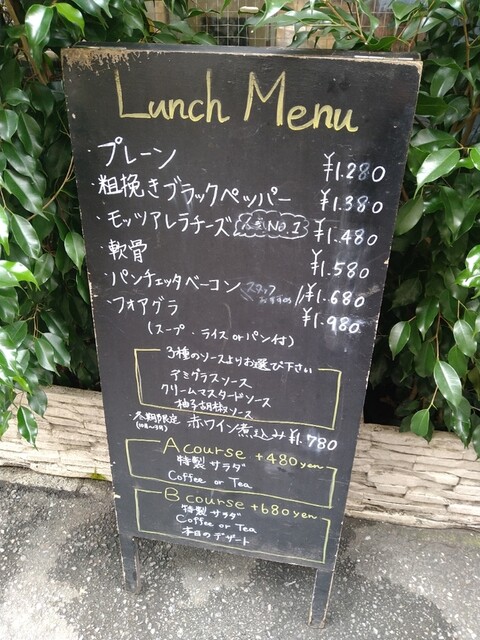 Lunch Menu
・プレーン ¥1.280
・粗挽きブラックペッパー ¥1.380
・モッツアレラチーズ 人気No.1 ¥1.480
・軟骨 ¥1.580
・パンチェッタベーコン スタッフおすすめ ¥1.680
・フォアグラ ¥1.980
(スープ・ライス or パン付)
3種のソースよりお選び下さい
デミグラスソース
クリームマスタードソース
柚子胡椒ソース
冬期限定 赤ワイン煮込み ¥1.780
(10月〜3月)
A course +480yen
特製サラダ
Coffee or Tea
B course +680yen
特製サラダ
Coffee or Tea
本日のデザート